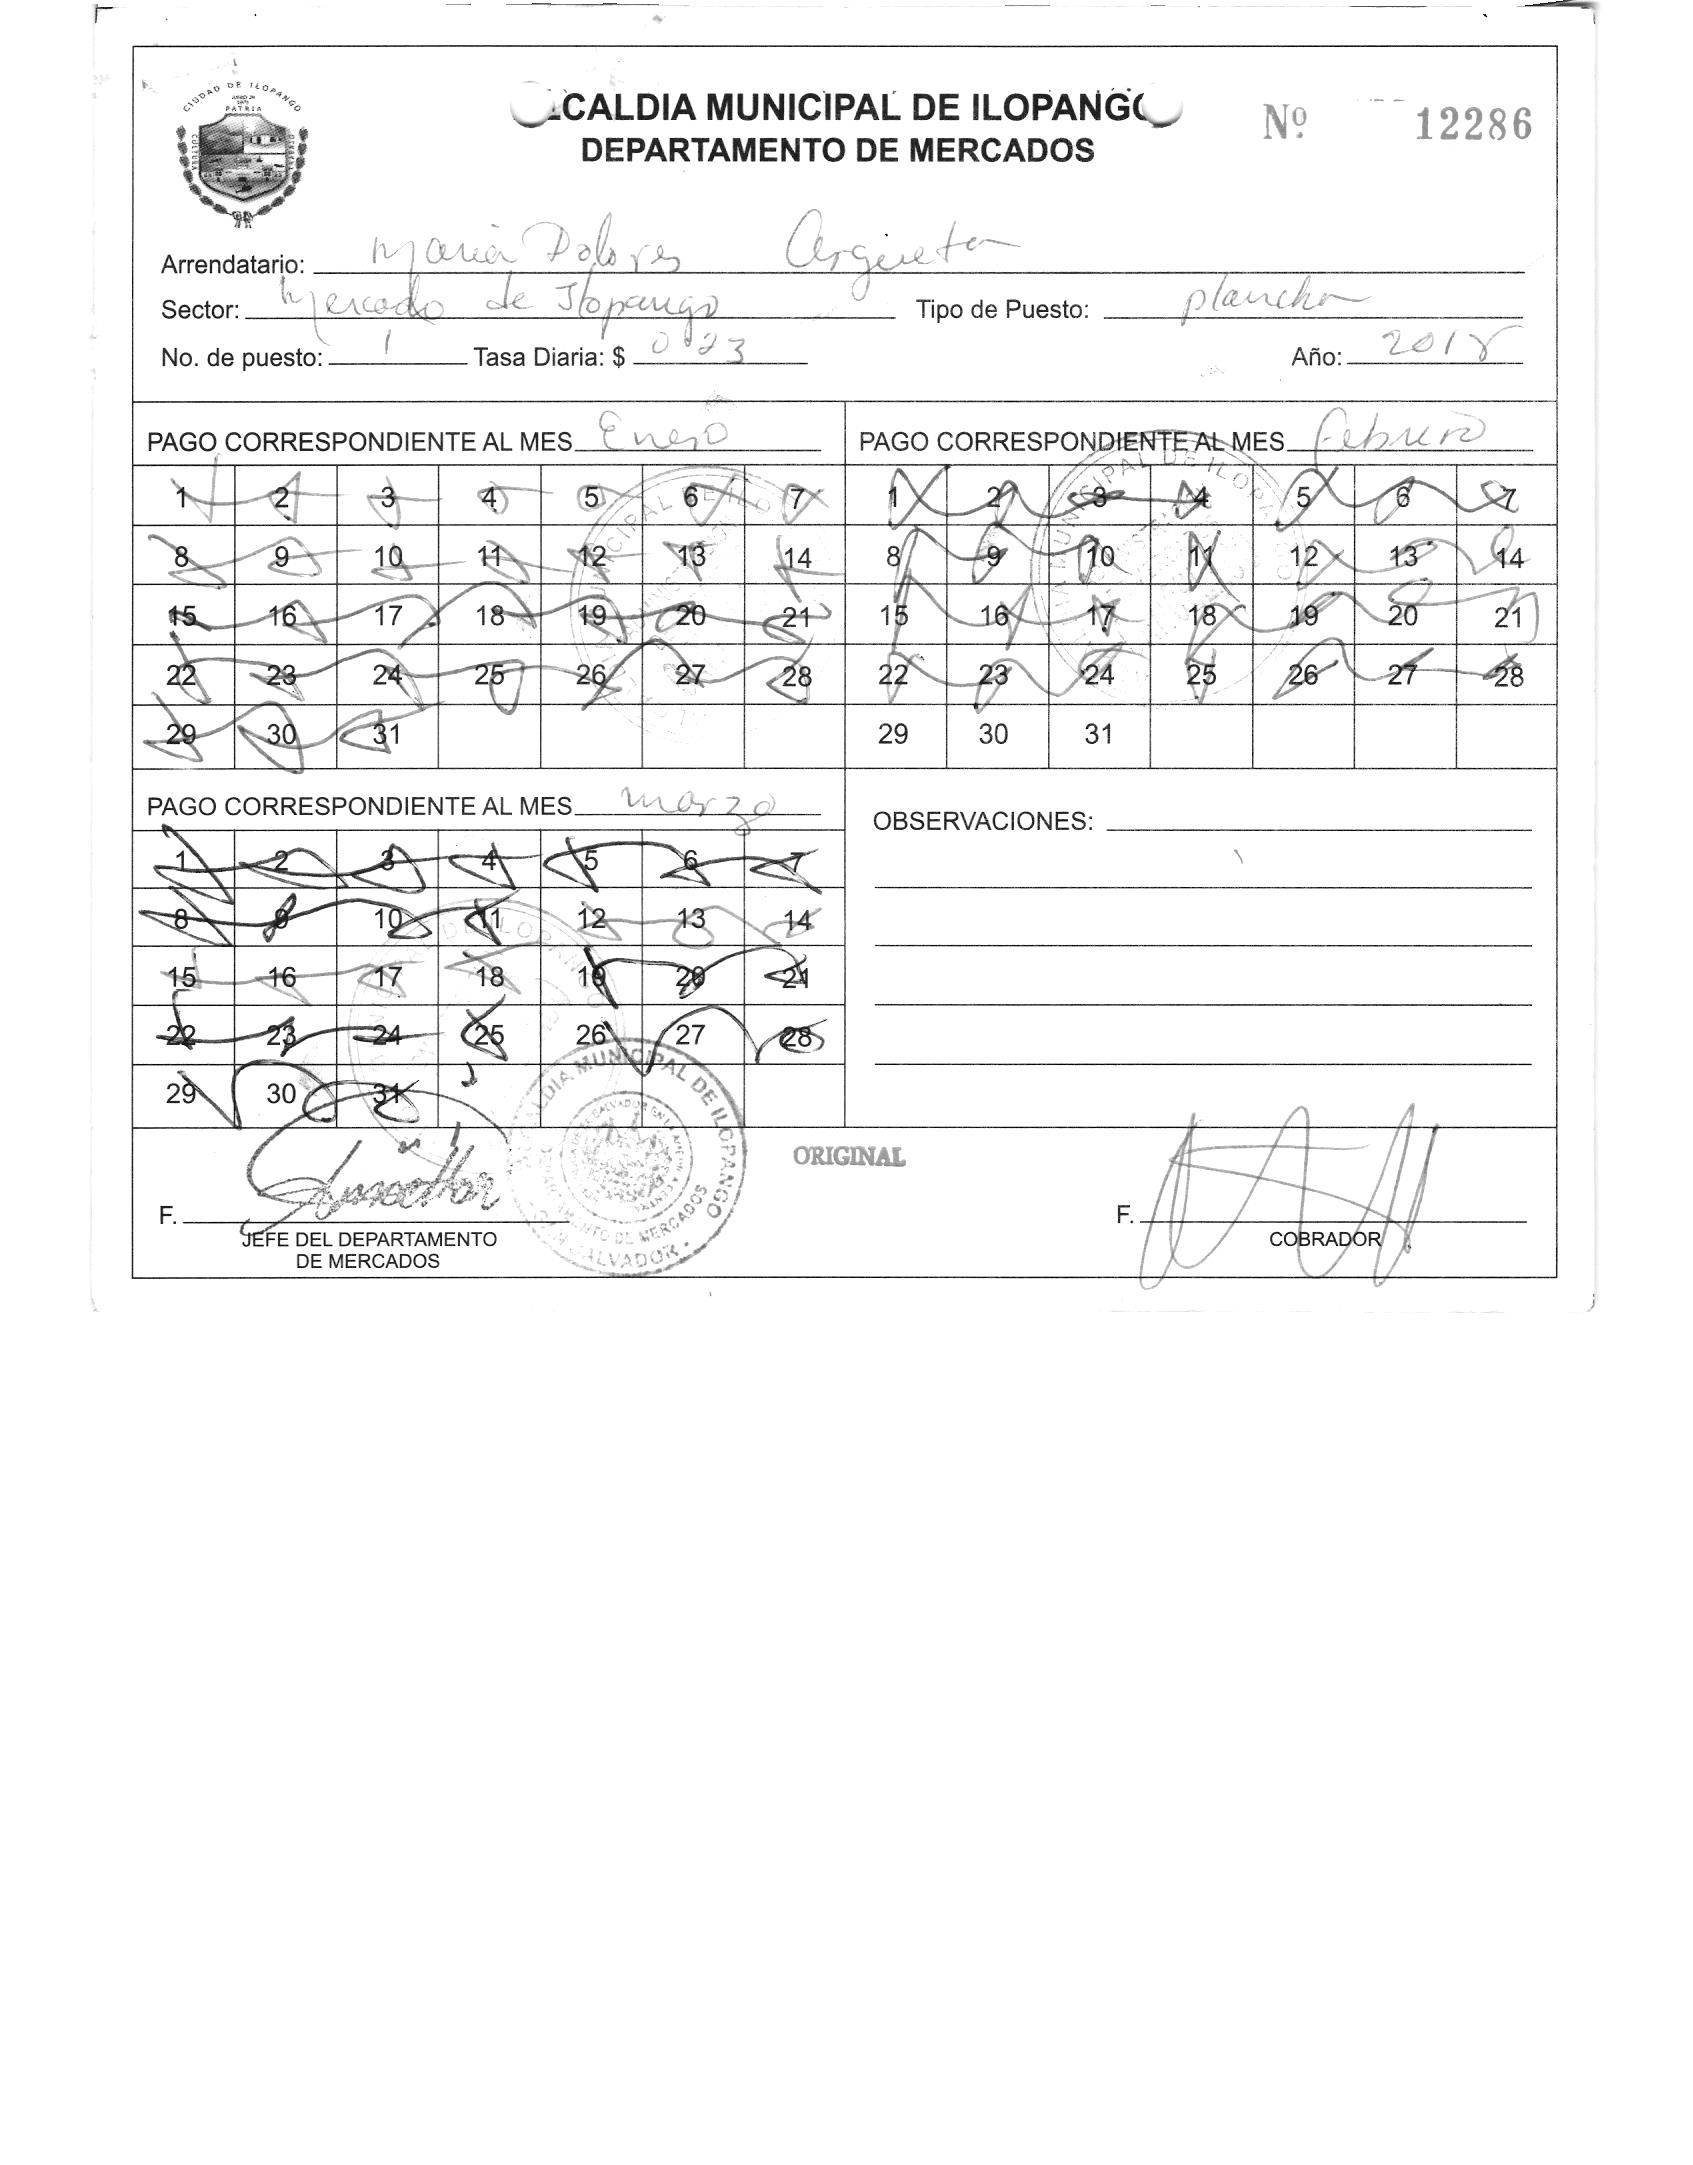 CIUDAD DE ILOPANGO
PATRIA
CALDIA MUNICIPAL DE ILOPANGO
DEPARTAMENTO DE MERCADOS
Nº 12286
Arrendatario: Maria Dolores Argueta
Sector: Mercado de Ilopango Tipo de Puesto: plancha
No. de puesto: 1 Tasa Diaria: $ 0.23 Año: 2018
PAGO CORRESPONDIENTE AL MES Enero
1 2 3 4 5 6 7
8 9 10 11 12 13 14
15 16 17 18 19 20 21
22 23 24 25 26 27 28
29 30 31
PAGO CORRESPONDIENTE AL MES Febrero
1 2 3 4 5 6 7
8 9 10 11 12 13 14
15 16 17 18 19 20 21
22 23 24 25 26 27 28
29 30 31
PAGO CORRESPONDIENTE AL MES marzo
1 2 3 4 5 6 7
8 9 10 11 12 13 14
15 16 17 18 19 20 21
22 23 24 25 26 27 28
29 30 31
OBSERVACIONES:
ALCALDIA MUNICIPAL DE ILOPANGO
DE MERCADOS
SALVADOR
ORIGINAL
F.
JEFE DEL DEPARTAMENTO
DE MERCADOS
F.
COBRADOR